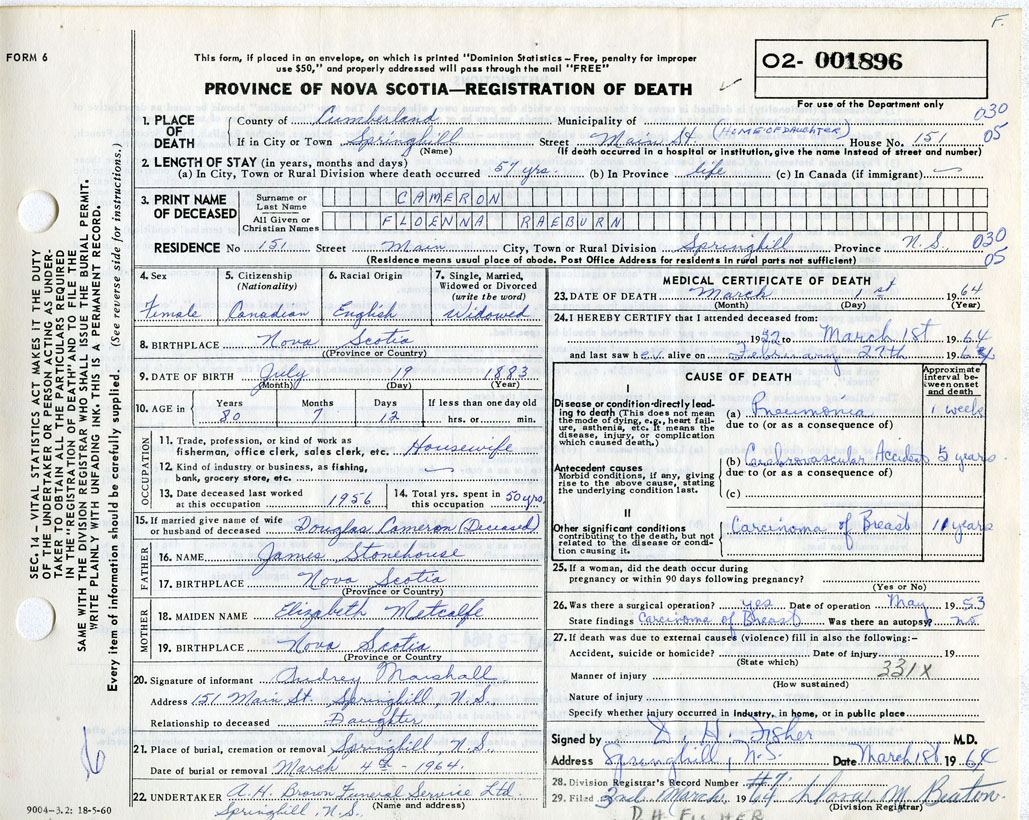 F.
FORM 6
This form, if placed in an envelope, on which is printed "Dominion Statistics – Free, penalty for improper
use $50," and properly addressed will pass through the mail "FREE"
02- 001896
PROVINCE OF NOVA SCOTIA—REGISTRATION OF DEATH
For use of the Department only
1. PLACE OF DEATH County of Cumberland Municipality of 030
If in City or Town Springhill Street Main St. (HOME OF DAUGHTER) House No. 151 05
(Name) (If death occurred in a hospital or institution, give the name instead of street and number)
2. LENGTH OF STAY (in years, months and days)
(a) In City, Town or Rural Division where death occurred 57 yrs. (b) In Province life (c) In Canada (if immigrant)
3. PRINT NAME OF DECEASED Surname or Last Name CAMERON
All Given or Christian Names FLOENNA RAEBURN
RESIDENCE No 151 Street Main City, Town or Rural Division Springhill Province N.S. 030
(Residence means usual place of abode. Post Office Address for residents in rural parts not sufficient) 05
4. Sex 5. Citizenship (Nationality) 6. Racial Origin 7. Single, Married, Widowed or Divorced (write the word)
Female Canadian English Widowed
8. BIRTHPLACE Nova Scotia
(Province or Country)
9. DATE OF BIRTH July 19 1883
(Month) (Day) (Year)
10. AGE in Years Months Days If less than one day old
80 7 12 hrs. or min.
OCCUPATION
11. Trade, profession, or kind of work as
fisherman, office clerk, sales clerk, etc. Housewife
12. Kind of industry or business, as fishing,
bank, grocery store, etc.
13. Date deceased last worked at this occupation 1956 14. Total yrs. spent in this occupation 50 yrs.
15. If married give name of wife
or husband of deceased Douglas Cameron (Deceased)
FATHER
16. NAME James Stonehouse
17. BIRTHPLACE Nova Scotia
(Province or Country)
MOTHER
18. MAIDEN NAME Elizabeth Metcalfe
19. BIRTHPLACE Nova Scotia
(Province or Country
20. Signature of informant Audrey Marshall
Address 151 Main St. Springhill, N.S.
Relationship to deceased Daughter
21. Place of burial, cremation or removal Springhill, N.S.
Date of burial or removal March 4th - 1964.
22. UNDERTAKER A.H. Brown Funeral Service Ltd.
(Name and address)
Springhill, N.S.
9004-3.2: 18-5-60
MEDICAL CERTIFICATE OF DEATH
23. DATE OF DEATH March 1st 1964
(Month) (Day) (Year)
24. I HEREBY CERTIFY that I attended deceased from:
1922 to March 1st 1964
and last saw her alive on February 27th 1964
CAUSE OF DEATH
Approximate interval between onset and death
I
Disease or condition directly leading to death (This does not mean the mode of dying, e.g., heart failure, asthenia, etc. It means the disease, injury, or complication which caused death.)
(a) Pneumonia 1 week
due to (or as a consequence of)
Antecedent causes
Morbid conditions, if any, giving rise to the above cause, stating the underlying condition last.
(b) Cerebrovascular Accident 5 years
due to (or as a consequence of)
(c)
II
Other significant conditions
contributing to the death, but not related to the disease or condition causing it.
Carcinoma of Breast 11 years
25. If a woman, did the death occur during
pregnancy or within 90 days following pregnancy?
(Yes or No)
26. Was there a surgical operation? yes Date of operation May 1953
State findings Carcinoma of Breast Was there an autopsy? no
27. If death was due to external causes (violence) fill in also the following:–
Accident, suicide or homicide? Date of injury 19
(State which)
331X
Manner of injury
(How sustained)
Nature of injury
Specify whether injury occurred in industry, in home, or in public place
Signed by D. H. Fisher M.D.
Address Springhill, N.S. Date March 1st 1964
28. Division Registrar's Record Number #7
29. Filed 2nd March 1964 M. Beaton
(Division Registrar)
D.H. FISHER
SEC. 14 — VITAL STATISTICS ACT MAKES IT THE DUTY
OF THE UNDERTAKER OR PERSON ACTING AS UNDER-
TAKER TO OBTAIN ALL THE PARTICULARS REQUIRED
IN THE "REGISTRATION OF DEATH" AND TO FILE THE
SAME WITH THE DIVISION REGISTRAR WHO SHALL ISSUE THE BURIAL PERMIT.
WRITE PLAINLY WITH UNFADING INK. THIS IS A PERMANENT RECORD.
Every item of information should be carefully supplied. (See reverse side for instructions.)